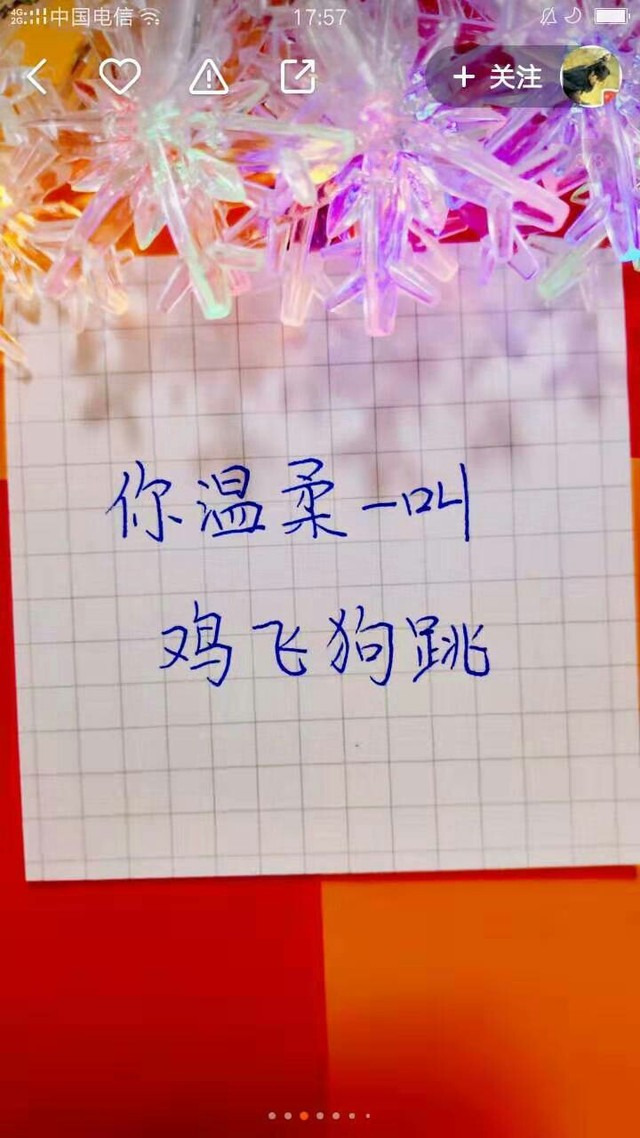 4G 2G 中国电信 17:57
+ 关注
你温柔一叫
鸡飞狗跳